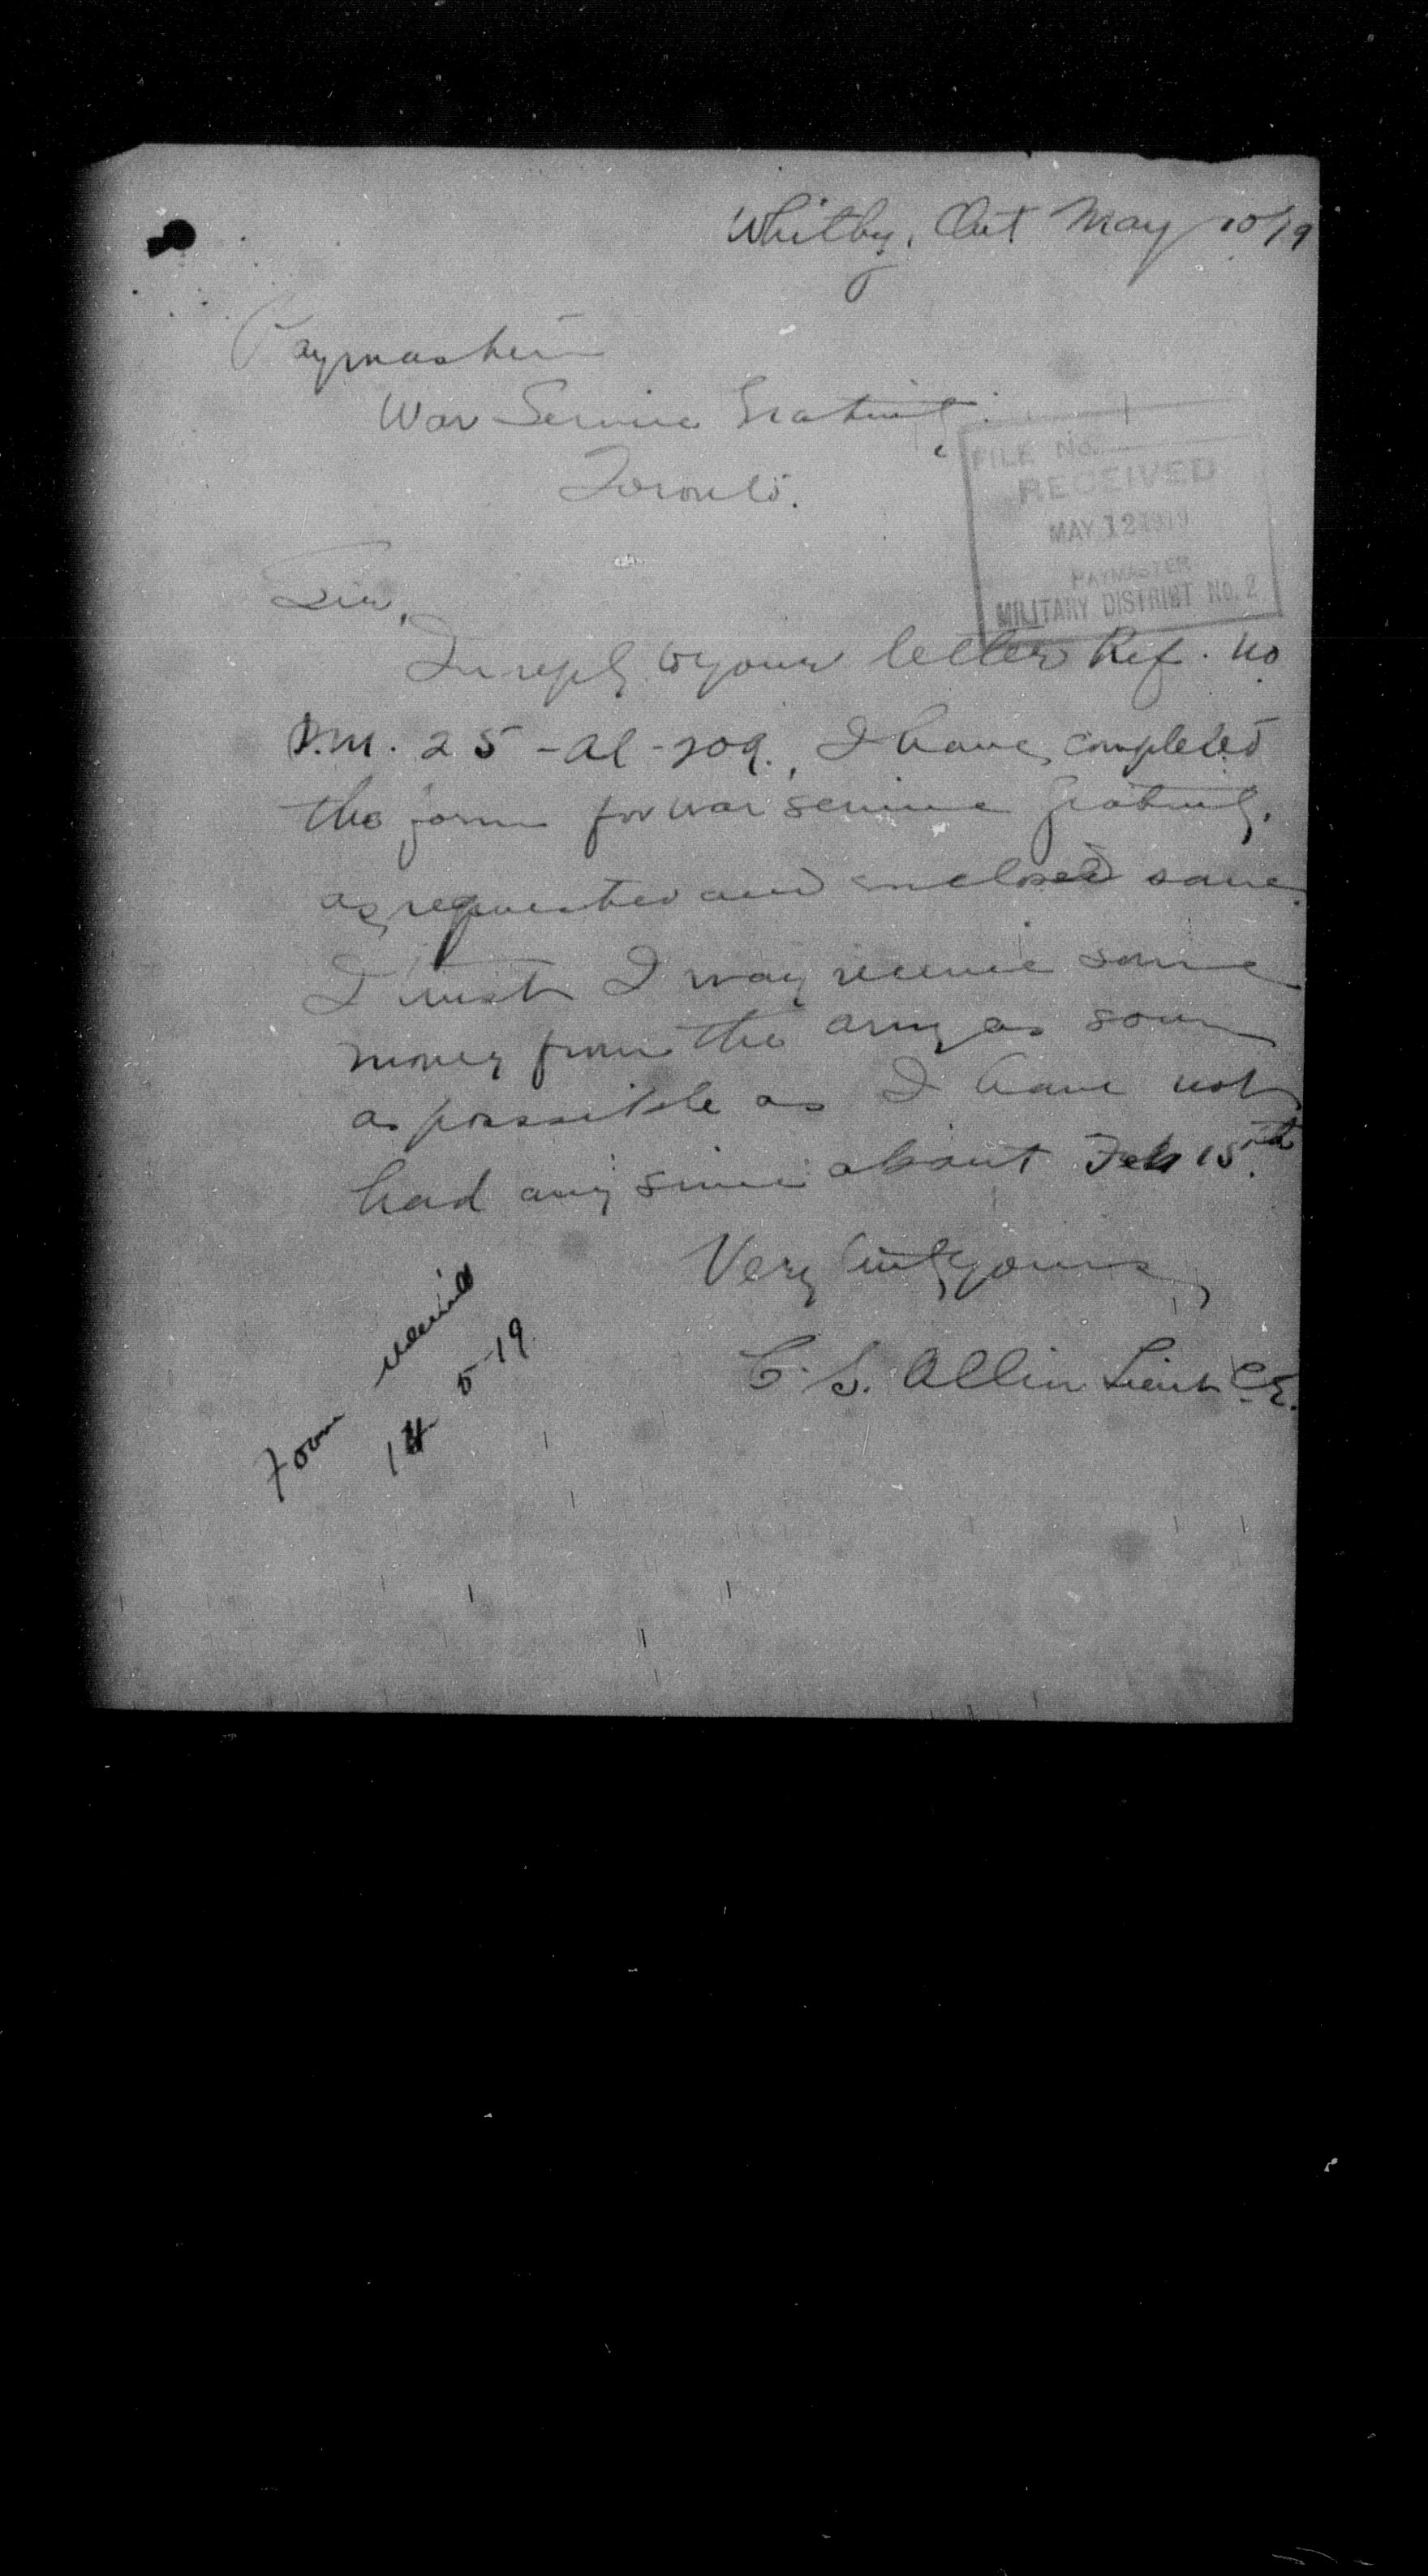 Whitby, Ont May 10/19
Paymaster
War Service Gratuity
Toronto.
FILE No.
RECEIVED
MAY 12 1919
PAYMASTER
MILITARY DISTRICT No. 2
Sir,
In reply to your letter Ref. No
P.M. 25-Al-209., I have completed
the form for war service gratuity,
as requested and enclosed same.
I trust I may receive some
money from the army as soon
as possible as I have not
had any since about Feb 15th.
Very truly yours,
C. S. Allin Lieut C.E.
Form received
14 5-19